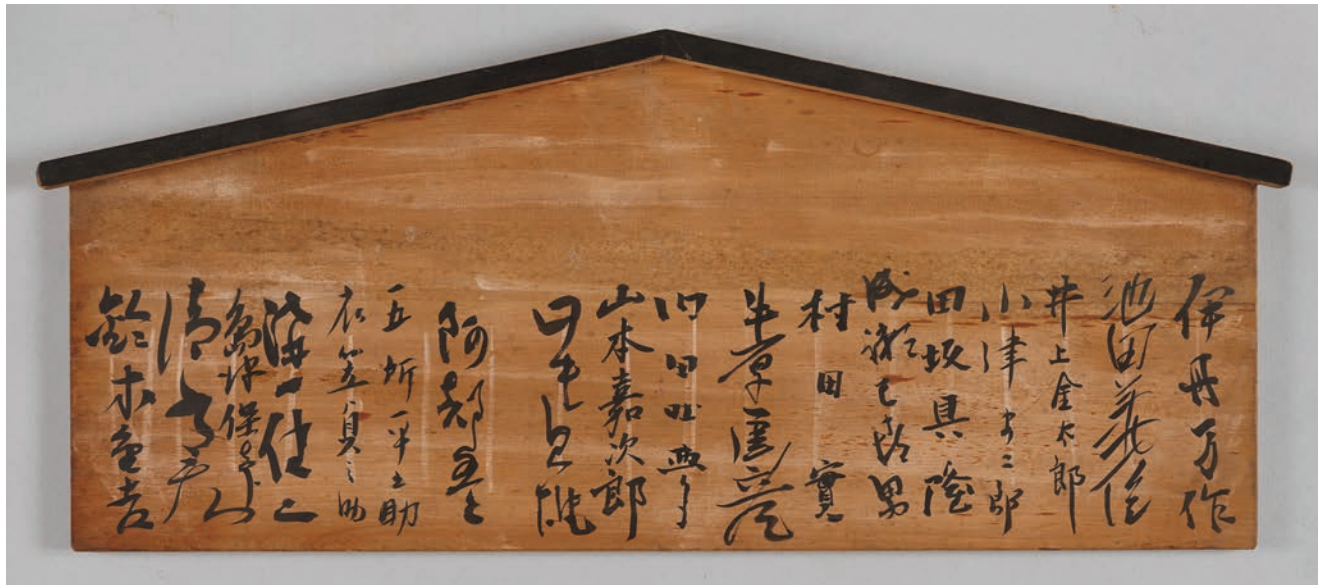 伊丹万作
池田義信
井上金太郎
小津安二郎
田坂具隆
成瀬巳喜男
村田實
牛原虚彦
内田吐夢
山本嘉次郎
山中貞雄
阿部豊
五所平之助
衣笠貞之助
溝口健二
島津保次郎
清水宏
鈴木重吉